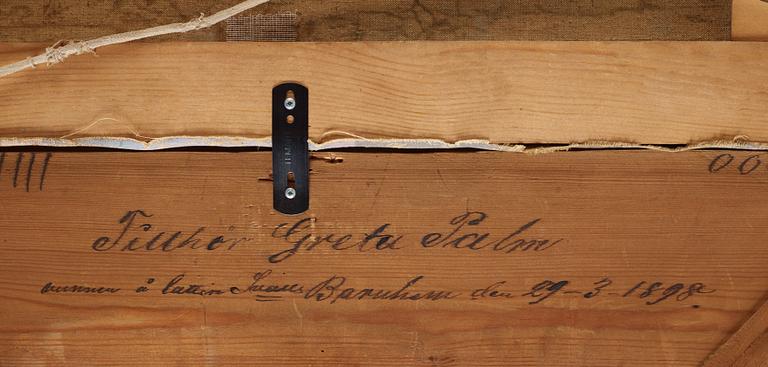 Tillhör Greta Palm
vunnen å lotteri Barnhem den 29-3-1898